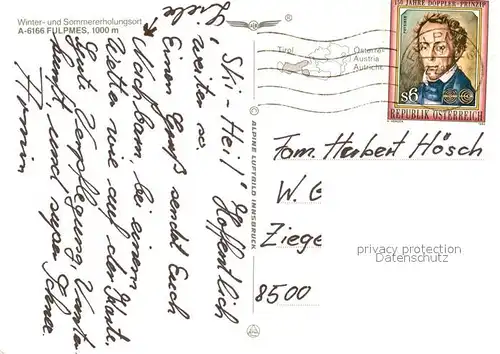 Winter- und Sommererholungsort
A-6166 FULPMES, 1000 m
Ski-Heil! Hoffentlich
weiter so.
Einen Gruß sendet Euch
Nachbarn bei einem
Wetter wie auf der Karte.
Gute Verpflegung, Unter-
kunft, und super Schnee.
Armin
ALPINE LUFTBILD INNSBRUCK
Tirol
Österreich
Austria
Autriche
150 JAHRE DOPPLER-PRINZIP
s6
REPUBLIK ÖSTERREICH
Fam. Herbert Hösch
W. G
Ziege
8500
privacy protection
Datenschutz